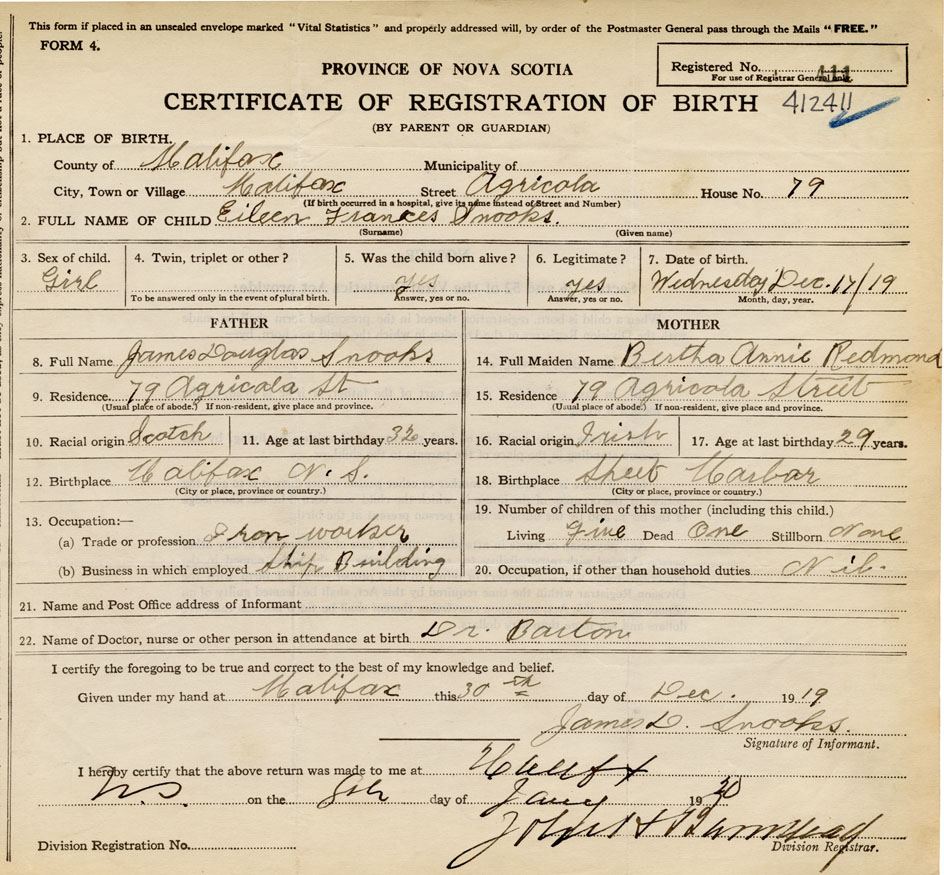 This form if placed in an unsealed envelope marked "Vital Statistics" and properly addressed will, by order of the Postmaster General pass through the Mails "FREE."
FORM 4.
Registered No.
For use of Registrar General only.
PROVINCE OF NOVA SCOTIA
CERTIFICATE OF REGISTRATION OF BIRTH 412411
(BY PARENT OR GUARDIAN)
1. PLACE OF BIRTH.
County of Halifax Municipality of
City, Town or Village Halifax Street Agricola House No. 79
(If birth occurred in a hospital, give its name instead of Street and Number)
2. FULL NAME OF CHILD Eileen Frances Snooks.
(Surname) (Given name)
3. Sex of child. 4. Twin, triplet or other? 5. Was the child born alive? 6. Legitimate? 7. Date of birth.
Girl yes yes Wednesday Dec. 17/19
To be answered only in the event of plural birth. Answer, yes or no. Answer, yes or no. Month, day, year.
FATHER MOTHER
8. Full Name James Douglas Snooks 14. Full Maiden Name Bertha Annie Redmond
9. Residence. 79 Agricola St 15. Residence 79 Agricola Street
(Usual place of abode.) If non-resident, give place and province. (Usual place of abode.) If non-resident, give place and province.
10. Racial origin Scotch 11. Age at last birthday 32 years. 16. Racial origin Irish 17. Age at last birthday 29 years.
12. Birthplace Halifax N. S. 18. Birthplace Sheet Harbor
(City or place, province or country.) (City or place, province or country.)
13. Occupation:— 19. Number of children of this mother (including this child.)
(a) Trade or profession Iron worker Living Five Dead One Stillborn None
(b) Business in which employed Ship Building 20. Occupation, if other than household duties Nil.
21. Name and Post Office address of Informant
22. Name of Doctor, nurse or other person in attendance at birth Dr. Barton
I certify the foregoing to be true and correct to the best of my knowledge and belief.
Given under my hand at Halifax this 30th day of Dec. 1919
James D. Snooks.
Signature of Informant.
I hereby certify that the above return was made to me at Halifx
N.S. on the 8th day of Jany 1920
Division Registration No. Division Registrar.